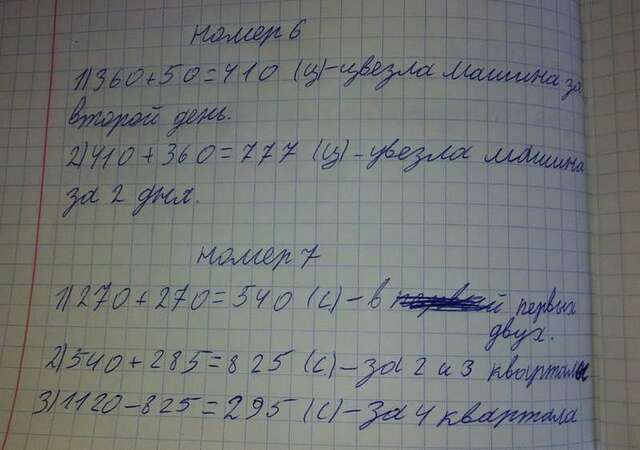 номер 6
1) 360+50=410 (ц)-цвезла машина за
второй день.
2) 410+360=777 (ц)-увезла машина
за 2 дня.
номер 7
1) 270+270=540 (с)-в й первых
двух.
2) 540+285=825 (с)-за 2 и 3 кварталы
3) 1120-825=295 (с)-за 4 квартала